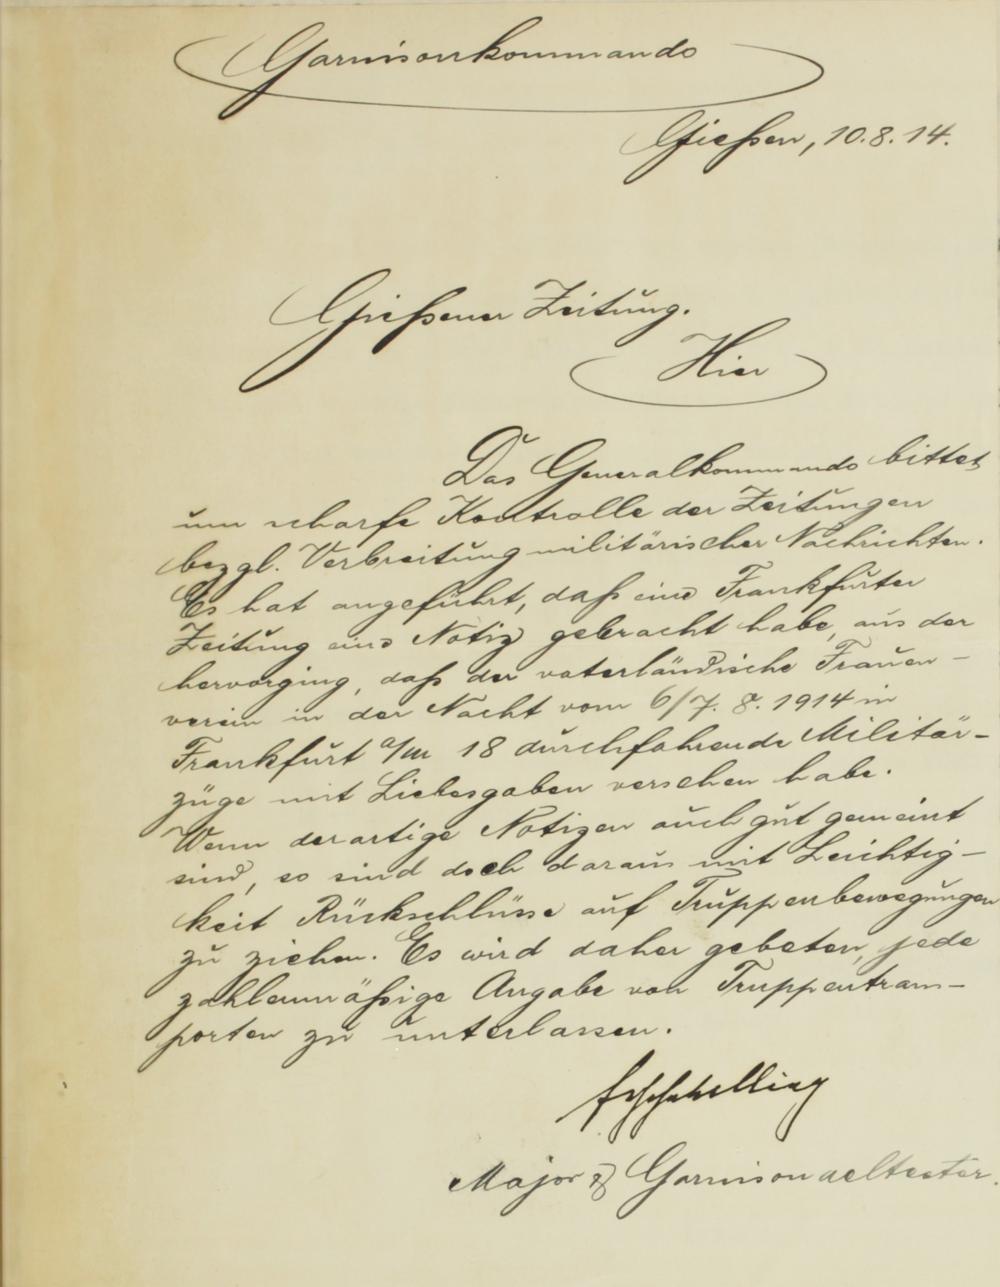 Garnisonkommando
Gießen, 10.8.14.
Gießener Zeitung.
Hier
Das Generalkommando bittet
um scharfe Kontrolle der Zeitungen
bezgl. Verbreitung militärischer Nachrichten.
Es hat angeführt, daß eine Frankfurter
Zeitung eine Notiz gebracht habe, aus der
hervorging, daß der vaterländische Frauen-
verein in der Nacht vom 6/7. 8. 1914 in
Frankfurt a/m 18 durchfahrende Militär-
züge mit Liebesgaben versehen habe.
Wenn derartige Notizen auch gut gemeint
sind, so sind doch daraus mit Leichtig-
keit Rückschlüsse auf Truppenbewegungen
zu ziehen. Es wird daher gebeten, jede
zahlenmäßige Angabe von Truppentrans-
porten zu unterlassen.
Major & Garnisonaeltester.